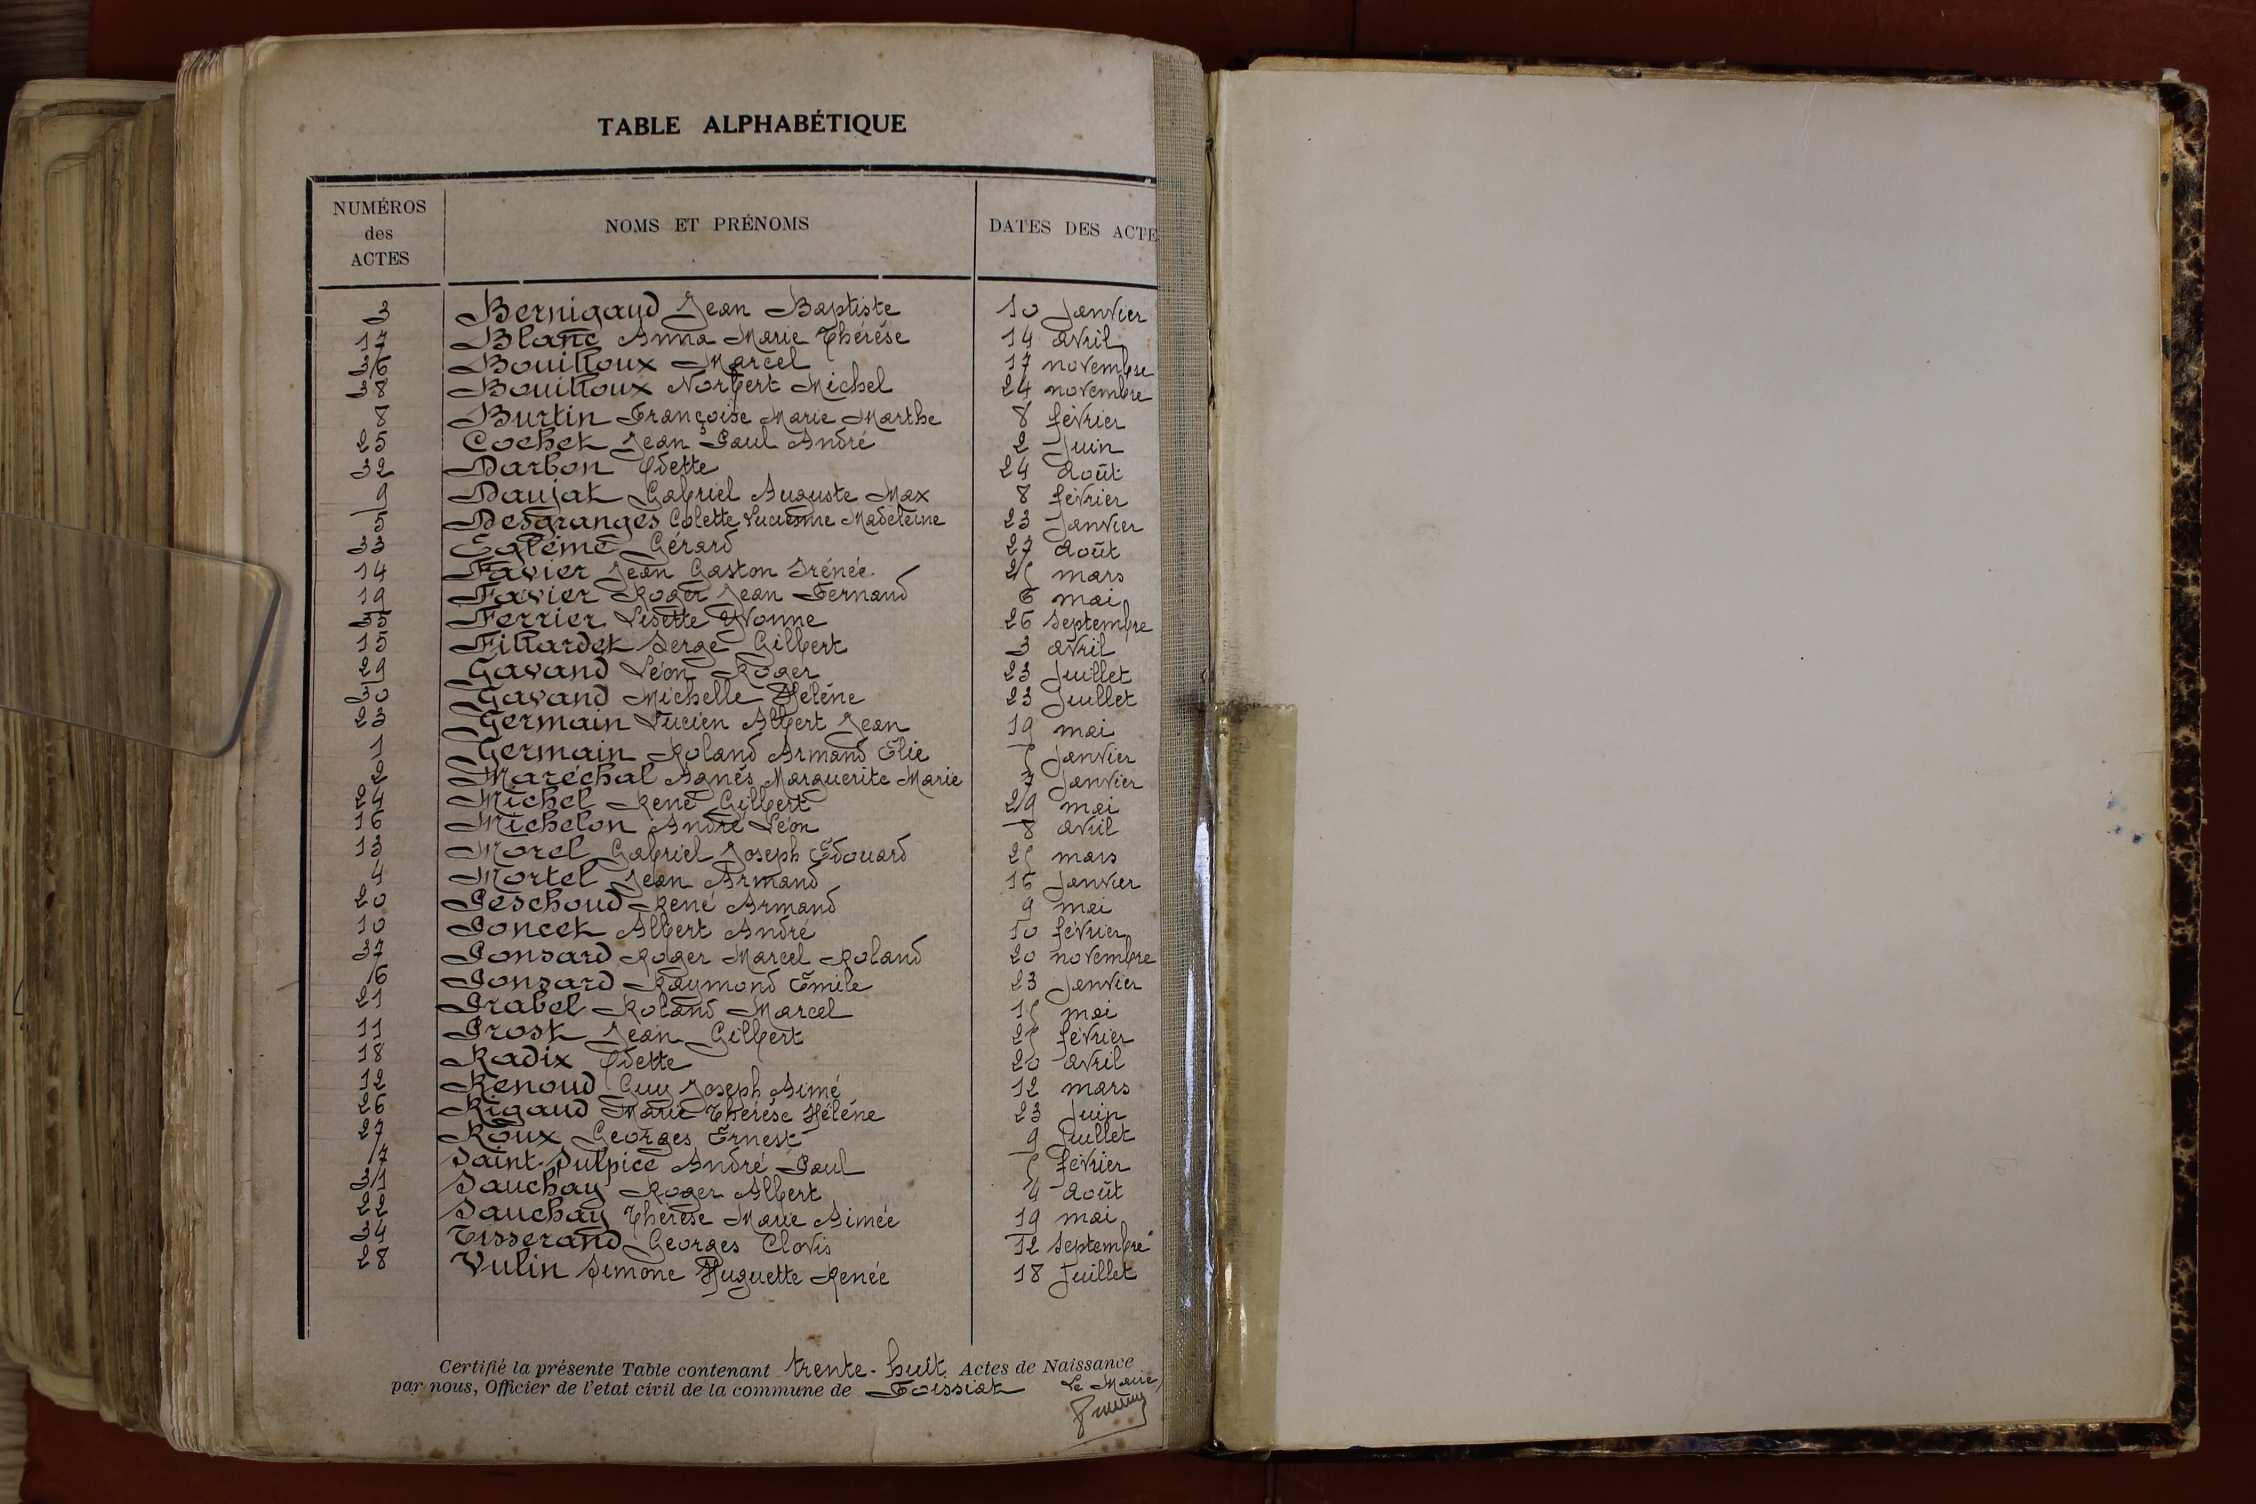 TABLE ALPHABÉTIQUE
NUMÉROS des ACTES NOMS ET PRÉNOMS DATES DES ACTE
3 Bernigaud Jean Baptiste 10 Janvier
17 Blanc Anna Marie Thérèse 14 avril
36 Bouilloux Marcel 17 novembre
38 Bouilloux Norbert Michel 24 novembre
8 Burtin Françoise Marie Marthe 8 février
25 Cochet Jean Paul André 2 Juin
32 Darbon Odette 24 Août
9 Daujat Gabriel Auguste Max 8 février
5 Desgranges Colette Lucienne Madeleine 23 Janvier
33 Egléme Gérard 27 Août
14 Favier Jean Gaston Irénée 25 mars
19 Favier Roger Jean Fernand 6 mai
35 Ferrier Lisette Yvonne 26 Septembre
15 Filliardet Serge Gilbert 3 avril
29 Gavand Léon Roger 23 Juillet
30 Gavand Michelle Hélène 23 Juillet
23 Germain Lucien Albert Jean 19 mai
1 Germain Roland Armand Elie 5 Janvier
2 Maréchal Agnès Marguerite Marie 7 Janvier
24 Michel René Gilbert 29 mai
16 Michelon André Léon 8 avril
13 Morel Gabriel Joseph Edouard 25 mars
4 Mortel Jean Armand 16 Janvier
20 Peschoud René Armand 9 mai
10 Poncet Albert André 10 février
37 Ponsard Roger Marcel Roland 20 novembre
6 Ponsard Raymond Emile 23 Janvier
21 Prabel Roland Marcel 15 mai
11 Prost Jean Gilbert 25 février
18 Radix Odette 20 avril
12 Renoud Guy Joseph Aimé 12 mars
26 Rigaud Marie Thérèse Hélène 23 Juin
27 Roux Georges Ernest 9 Juillet
7 Saint-Sulpice André Paul 5 février
31 Sauchay Roger Albert 4 Août
22 Sauchay Thérèse Marie Aimée 19 mai
34 Tisserand Georges Clovis 12 Septembre
28 Vulin Simone Huguette Renée 18 Juillet
Certifié la présente Table contenant trente-huit Actes de Naissance
par nous, Officier de l'etat civil de la commune de Foissiat Le Maire